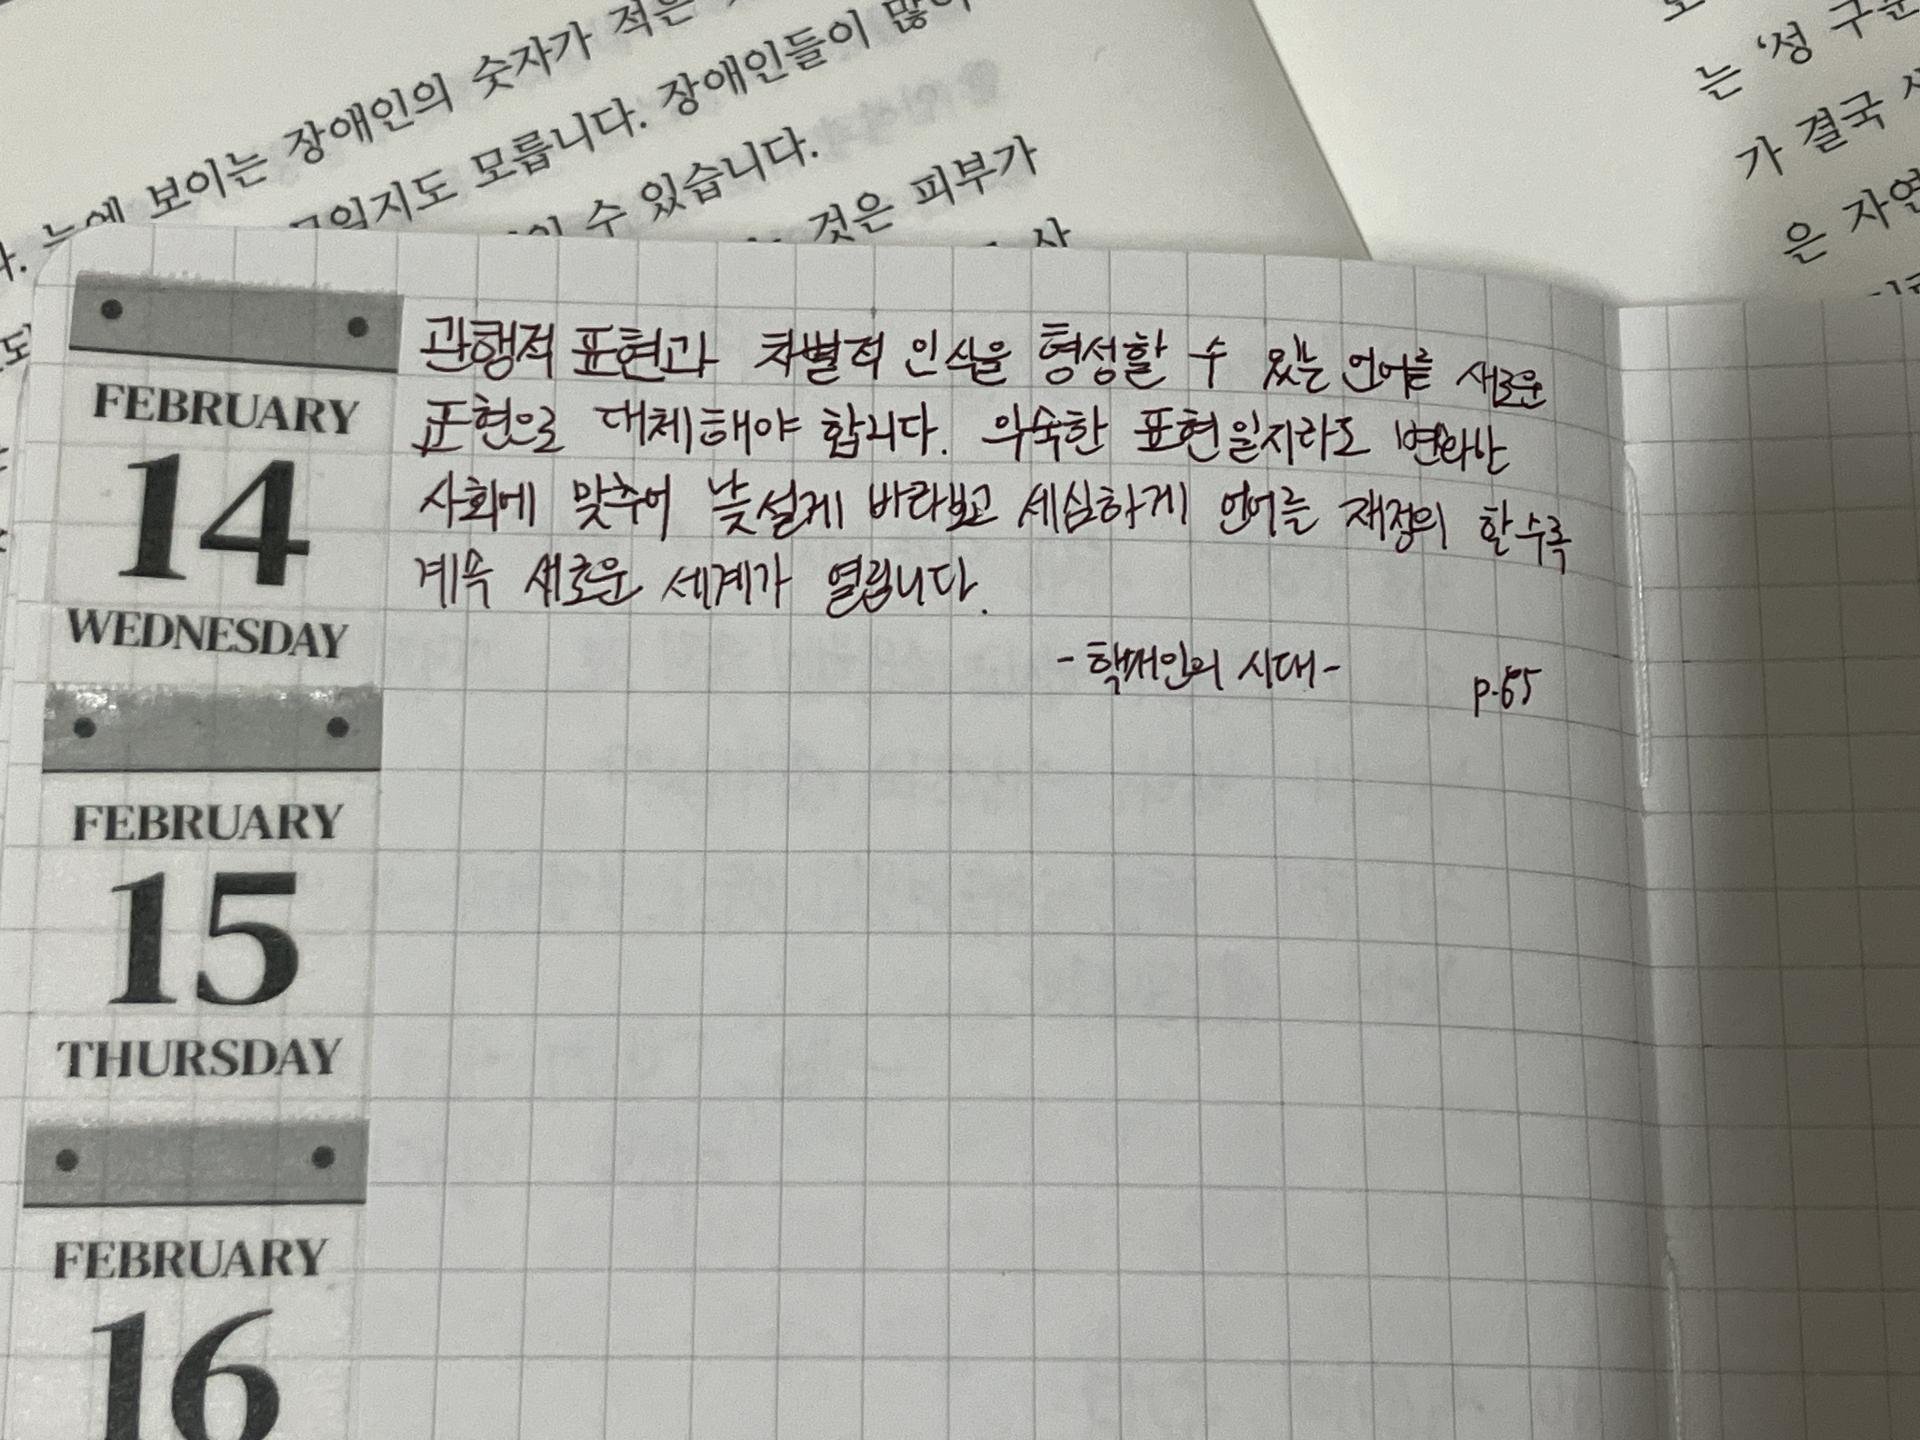 보이는 장애인의 숫자가 적은
모릅니다. 장애인들이 많이
수 있습니다.
것은 피부가
는 '성 구분
가 결국
은 자연
FEBRUARY
14
WEDNESDAY
관행적 표현과 차별적 인식을 형성할 수 있는 언어를 새로운
표현으로 대체해야 합니다. 익숙한 표현일지라도 변화한
사회에 맞추어 낯설게 바라보고 세심하게 언어를 재정의 할수록
계속 새로운 세계가 열립니다.
- 핵개인의 시대 -
p.65
FEBRUARY
15
THURSDAY
FEBRUARY
16